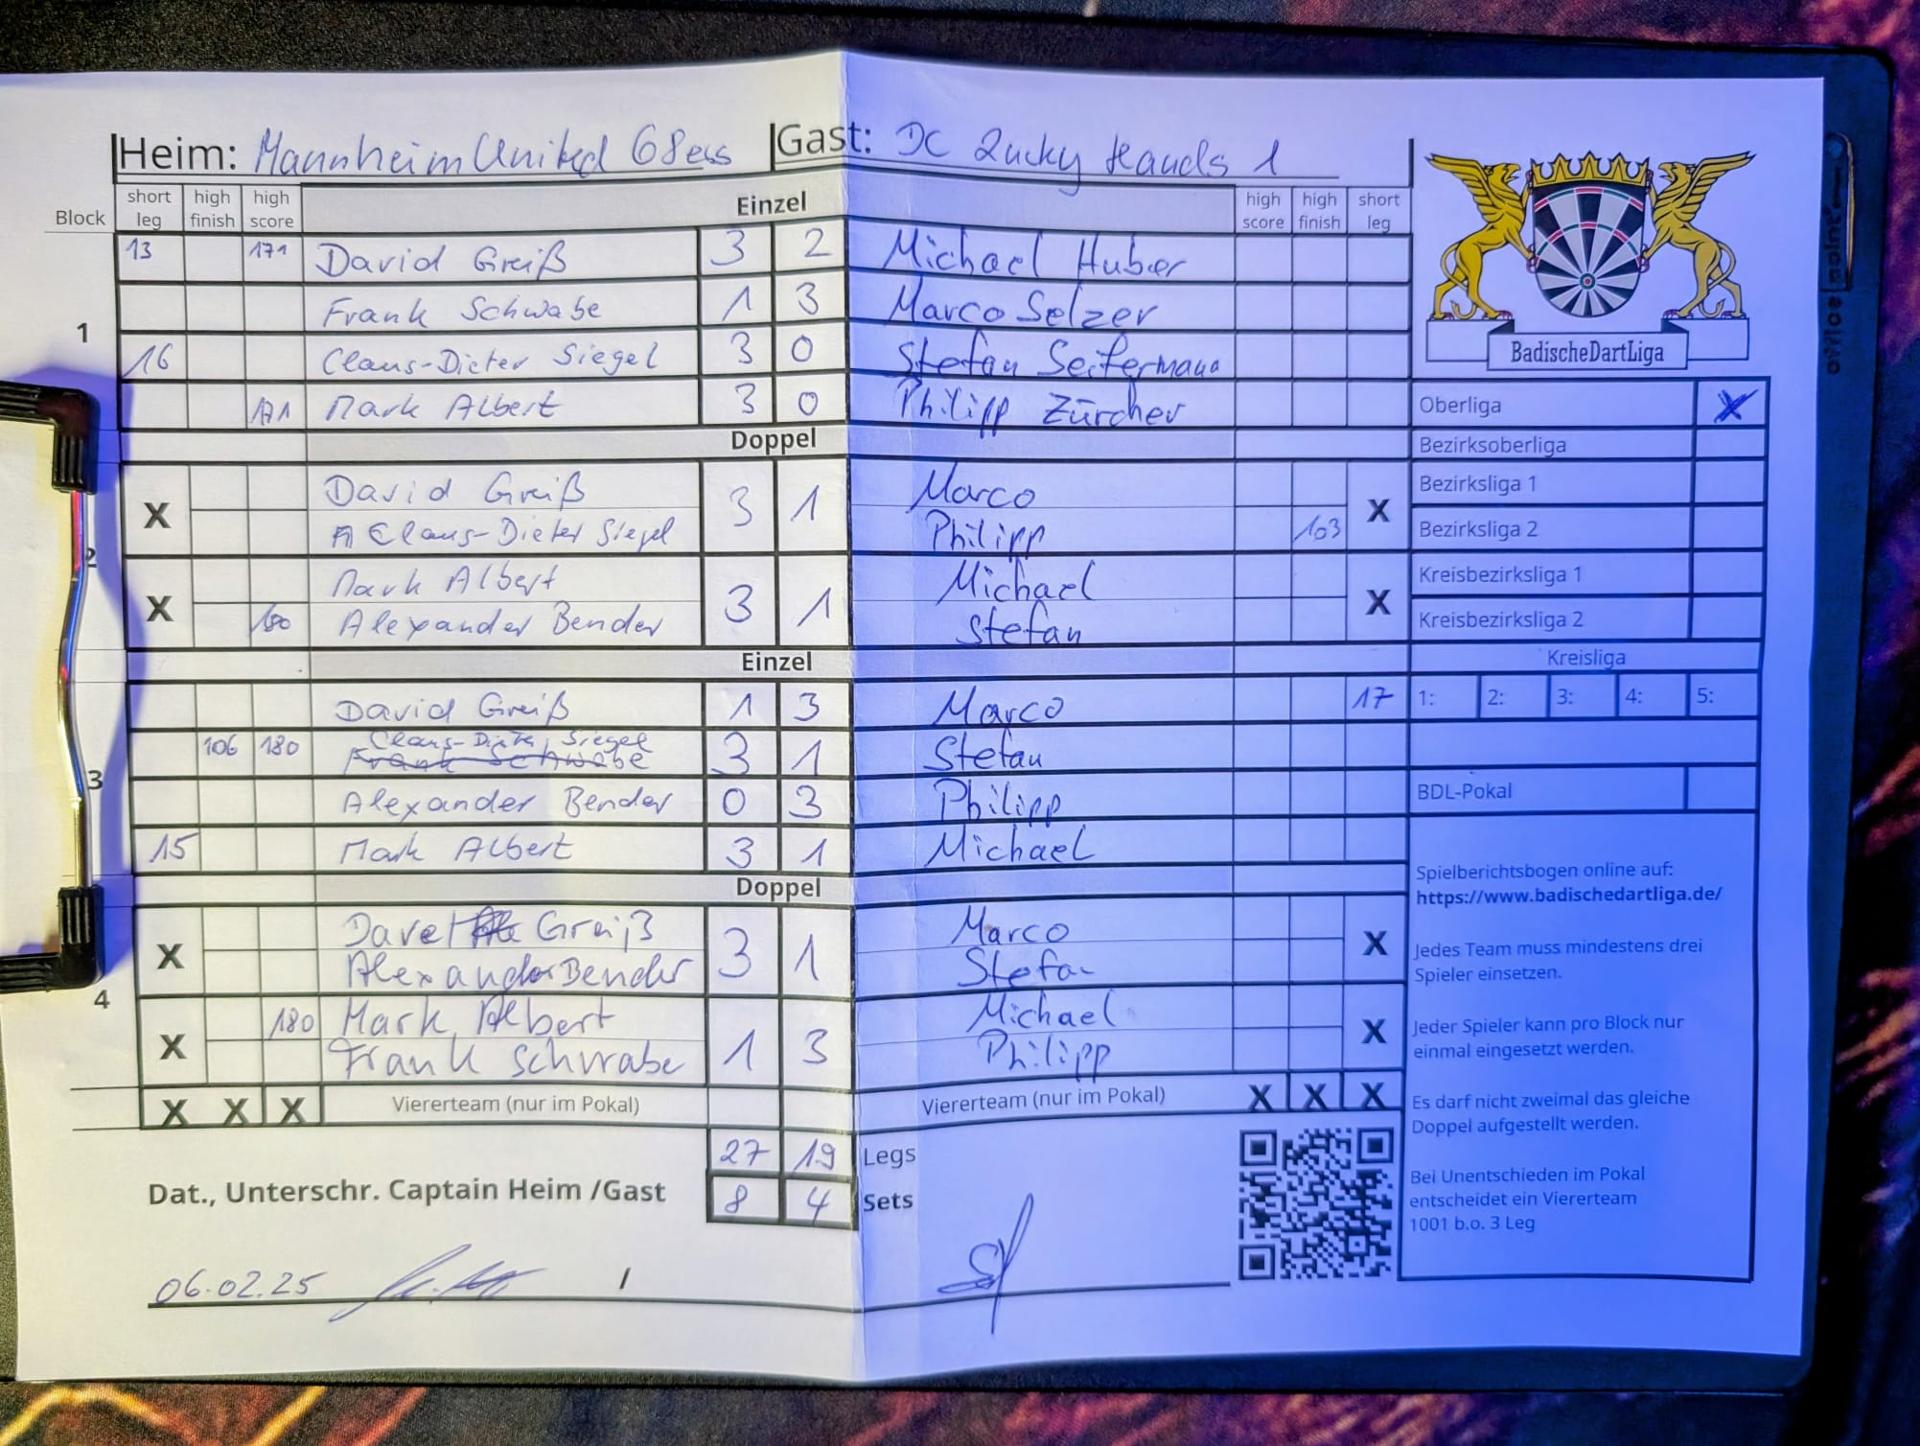 Heim: Mannheim United 68ers Gast: DC Lucky Hands 1
Block short leg high finish high score Einzel high score high finish short leg
1
13 171 David Greiß 3 2 Michael Huber
Frank Schwabe 1 3 Marco Selzer
16 Claus-Dieter Siegel 3 0 Stefan Seifermann
171 Mark Albert 3 0 Philipp Zürcher
Doppel
2
X David Greiß 3 1 Marco X
Claus-Dieter Siegel Philipp 103
X Mark Albert 3 1 Michael X
180 Alexander Bender Stefan
Einzel
3
David Greiß 1 3 Marco 17
106 180 Claus-Dieter Siegel 3 1 Stefan
Frank Schwabe
Alexander Bender 0 3 Philipp
15 Mark Albert 3 1 Michael
Doppel
4
X Greiß 3 1 Marco X
Alexander Bender Stefan
X 180 Mark Albert 1 3 Michael X
Frank Schwabe Philipp
X X X Viererteam (nur im Pokal) Viererteam (nur im Pokal) X X X
27 19 Legs
8 4 Sets
Dat., Unterschr. Captain Heim /Gast
06.02.25 /
BadischeDartLiga
Oberliga X
Bezirksoberliga
Bezirksliga 1
Bezirksliga 2
Kreisbezirksliga 1
Kreisbezirksliga 2
Kreisliga
1: 2: 3: 4: 5:
BDL-Pokal
Spielberichtsbogen online auf:
https://www.badischedartliga.de/
Jedes Team muss mindestens drei
Spieler einsetzen.
Jeder Spieler kann pro Block nur
einmal eingesetzt werden.
Es darf nicht zweimal das gleiche
Doppel aufgestellt werden.
Bei Unentschieden im Pokal
entscheidet ein Viererteam
1001 b.o. 3 Leg